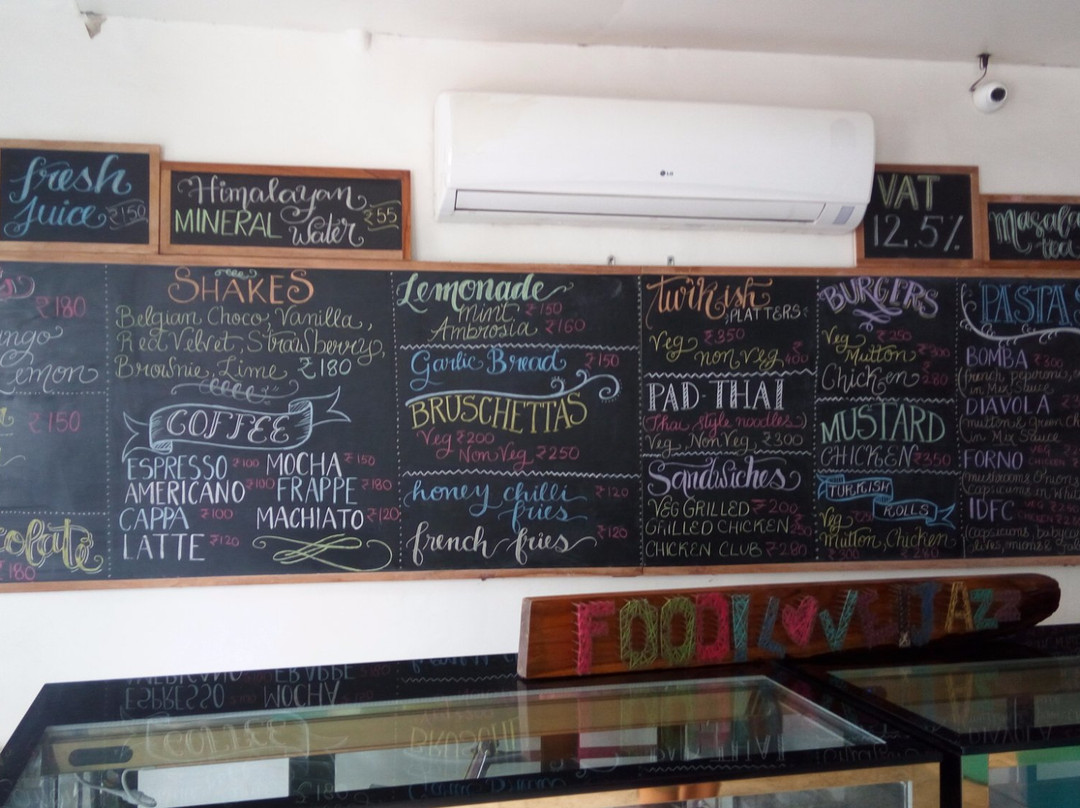 fresh
juice ₹150
Himalayan
MINERAL water ₹55
LG
VAT
12.5%
Masala
tea
₹180
ango
Lemon
₹150
colate
₹180
SHAKES
Belgian Choco, Vanilla,
Red Velvet, Strawsberry,
Brownie, Lime ₹180
COFFEE
ESPRESSO ₹100 MOCHA ₹150
AMERICANO ₹100 FRAPPE ₹180
CAPPA ₹100 MACHIATO ₹120
LATTE ₹120
Lemonade
mint, ₹150
Ambrosia ₹160
Garlic Bread ₹150
BRUSCHETTAS
Veg ₹200
Non Veg ₹250
honey chilli ₹120
fries
french fries ₹120
Turkish
PLATTERS:
Veg ₹350
non veg ₹400
PAD-THAI
(Thai style noodles)
Veg, NonVeg, ₹300
Sandwiches
VEG GRILLED ₹200
GRILLED CHICKEN
CHICKEN CLUB ₹280
BURGERS
Veg ₹250
Mutton ₹300
Chicken ₹280
MUSTARD
CHICKEN ₹350
TURKISH
ROLLS
Veg
Mutton, Chicken
₹300 ₹280
PASTAS
BOMBA ₹300
in Mix Sauce
DIAVOLA
(mutton & green
in Mix Sauce
FORNO
(mushrooms onions
capsicums in
IDFC
(capsicums, babycorn
FOOD I LOVE IT JAzz